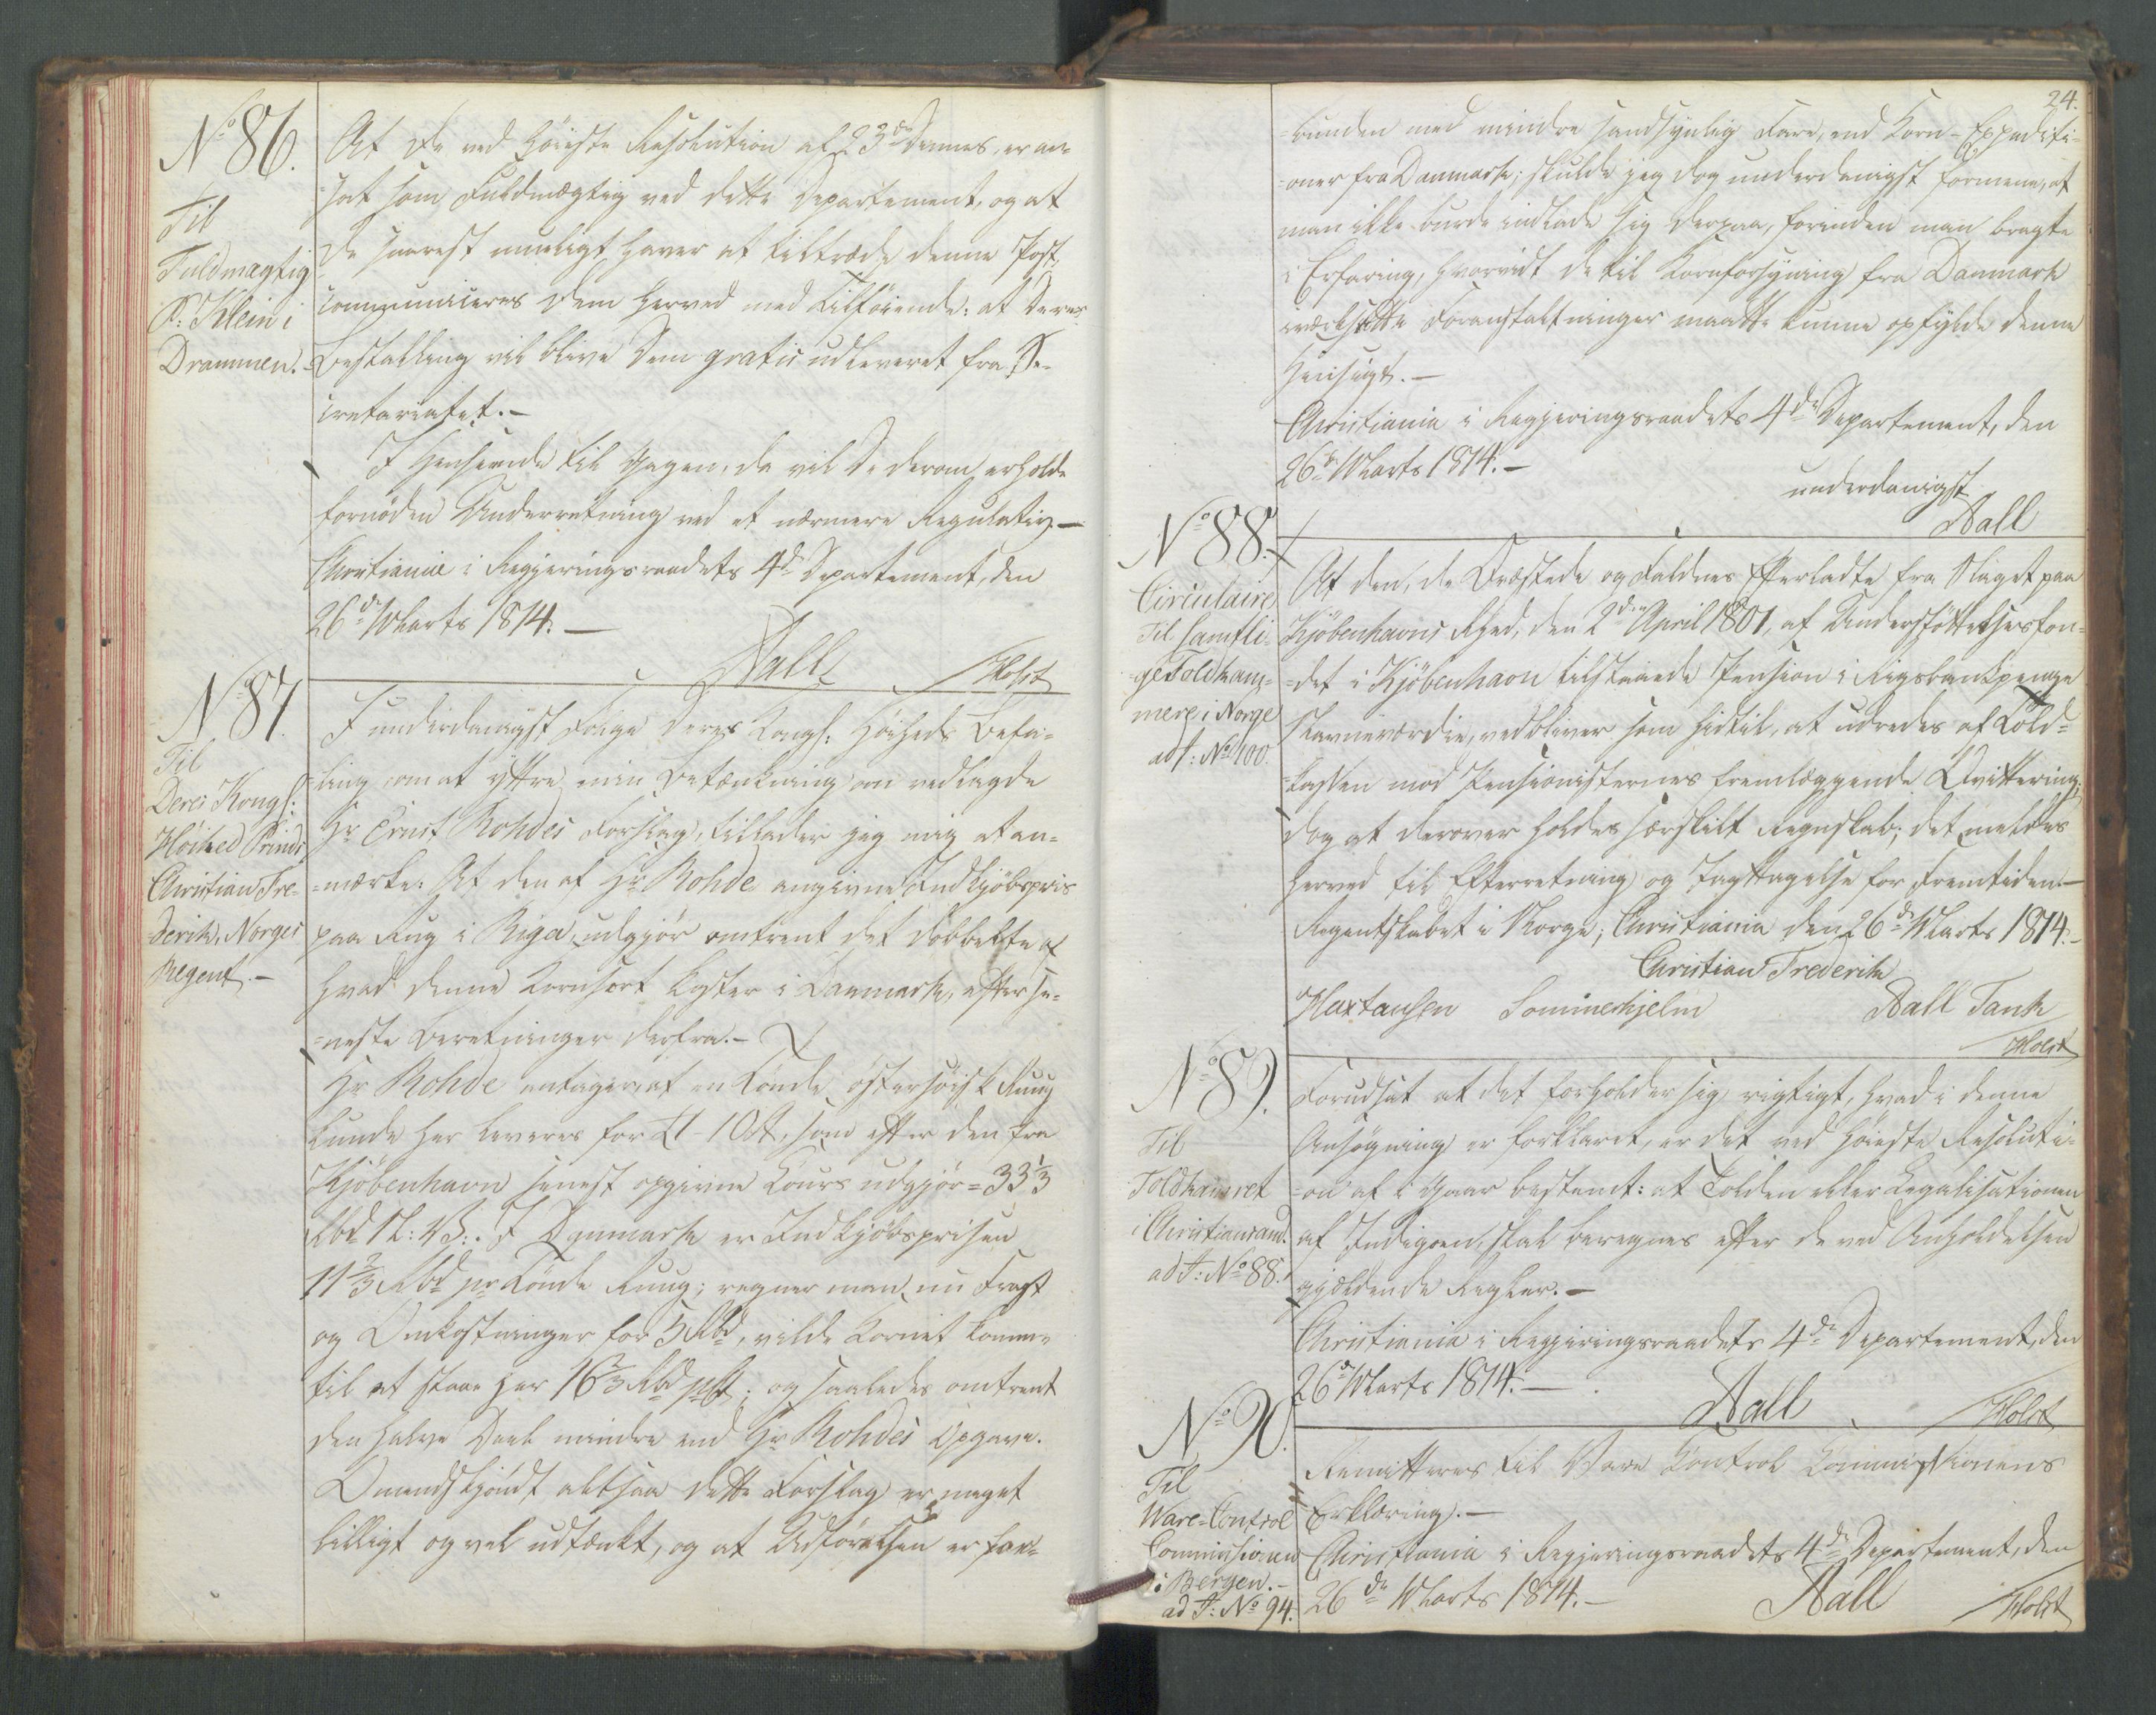 No 86.
Til
Fuldmægtig
P: Klein i
Drammen.
At De ved Høieste Resolution af 23de Dennes, er an-
=sat som Fuldmægtig ved dette Departement, og at
De snarest mueligt haver at tiltræde denne Post,
communiceres Dem herved med Tilføiende: at Deres
Bestalling vil blive Dem gratis udleveret fra Se-
cretariatet.-
I Henseende til Gagen, da vil De derom erholde
fornøden Underretning ved et nærmere Regulativ.-
Christiania i Regjeringsraadets 4de Departement, den
26de Marts 1814.-
Aall
Holst
No 87.
Til
Deres Kongl:
Höihed Prinds
Christian Fre-
derik, Norges
Regent.-
I underdanigst Følge Deres Kongl: Høiheds Befa-
=ling om at yttre min Betænkning om vedlagde
Hr Ernst Rohdes Forslag, tillader jeg mig at an-
=mærke: At den af Hr Rohde angivne Indkjøbspris
paa Rug i Riga, udgjør omtrent det dobbelte af
hvad denne Kornsort koster i Danmark, efter se-
=neste Beretninger derfra.-
Hr Rohde antager at en Tønde østersøisk Ruug
kunde her leveres for £1-10st, som efter den fra
Kjöbenhavn senest opgivne Cours udgjør = 33 1/3
Rbd N: V:. I Danmark er Indkjøbsprisen
11 2/3 Rbd pr Tønde Ruug; regner man nu Fragt
og Omkostninger for 5 Rbd, vilde Kornet komme
til at staae her 16 2/3 Rbd; og saaledes omtrent
den halve Deel mindre end Hr Rohdes Opgave.
Omendskjøndt altsaa dette Forslag er meget
billigt og vel udtænkt, og at Udførelsen er for-
24.
=bunden med mindre sandsynlig Fare, end Korn-Expediti-
=oner fra Danmark; skulde jeg dog underdanigst formene, at
man ikke burde indlade sig derpaa, forinden man bragte
i Erfaring, hvorvidt de til Kornforsyning fra Danmark
iværksatte Foranstaltninger maatte kunne opfylde denne
Hensigt.-
Christiania i Regjeringsraadets 4de Departement, den
26de Marts 1814.-
underdanigst
Aall
No 88.
Circulaire
til samtli-
=ge Toldkam-
mere i Norge
ad J: No 100.
At den, de Qvæstede og Faldnes Efterladte fra Slaget paa
Kjöbenhavns Rhed, den 2den April 1801, af Understøttelsesfon-
=det i Kjöbenhavn tilstaaede Pension i Rigsbankpenge
Navneværdie, vedbliver som hidtil, at udredes af Told-
=Cassen mod Pensionisternes fremlæggende Qvittering,
dog at derover holdes særskilt Regnskab; det meldes
herved til Efterretning og Iagttagelse for Fremtiden.-
Regentskabet i Norge, Christiania den 26de Marts 1814.-
Christian Frederik
Haxthausen Sommerhjelm Aall Tank
Holst
No 89.
Til
Toldkamret
i Christiansand.
ad J: No 88.
Forudsat at det forholder sig rigtigt, hvad i denne
Ansøgning er forklaret, er det ved Høieste Resoluti-
=on af i Gaar bestemt: at Tolden eller Legalisationen
af Indigoen, skal beregnes efter de ved Anholdelsen
gjældende Regler.-
Christiania i Regjeringsraadets 4de Departement, den
26de Marts 1814.-
Aall
Holst
No 90.
Til
Ware-Control
Commissionen
i Bergen.-
ad J: No 94.
Remitteres til Vare Control Commissionens
Erklæring.-
Christiania i Regjeringsraadets 4de Departement, den
26de Marts 1814.-
Aall
Holst